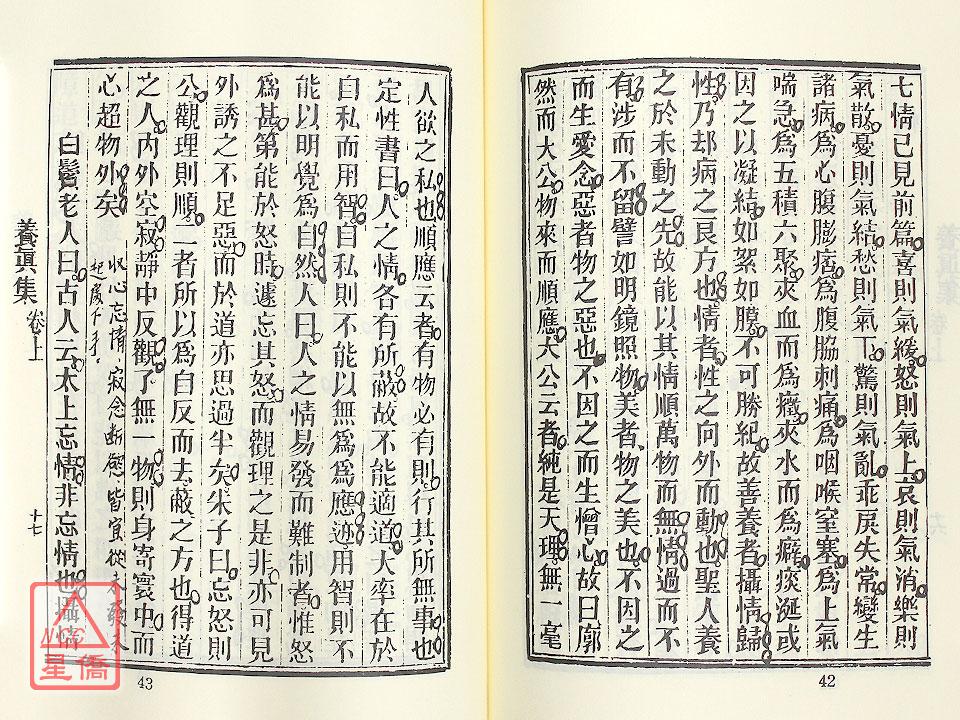 七情已見前篇喜則氣緩怒則氣上哀則氣消樂則
氣散憂則氣結愁則氣下驚則氣亂乖戾失常變生
諸病爲心腹膨痞爲腹脇刺痛爲咽喉窒塞爲上氣
喘急爲五積六聚夾血而爲癥夾水而爲癖痰涎或
因之以凝結如絮如膜不可勝紀故善養者攝情歸
性乃却病之良方也情者性之向外而動也聖人養
之於未動之先故能以其情順萬物而無情過而不
有涉而不留譬如明鏡照物美者物之美也不因之
而生愛念惡者物之惡也不因之而生憎心故曰廓
然而大公物來而順應大公云者純是天理無一毫
42
人欲之私也順應云者有物必有則行其所無事也
定性書曰人之情各有所蔽故不能適道大率在於
自私而用智自私則不能以無爲爲應迹用智則不
能以明覺爲自然人曰人之情易發而難制者惟怒
爲甚第能於怒時遽忘其怒而觀理之是非亦可見
外誘之不足惡而於道亦思過半矣朱子曰忘怒則
公觀理則順二者所以爲自反而去蔽之方也得道
之人內外空寂靜中反觀了無一物則身寄寰中而
心超物外矣
收心忘情寂念斷慾皆宜從未發未
起處下手
白鬚老人曰古人云太上忘情非忘情也攝情
養眞集 卷上 十七
43
星僑